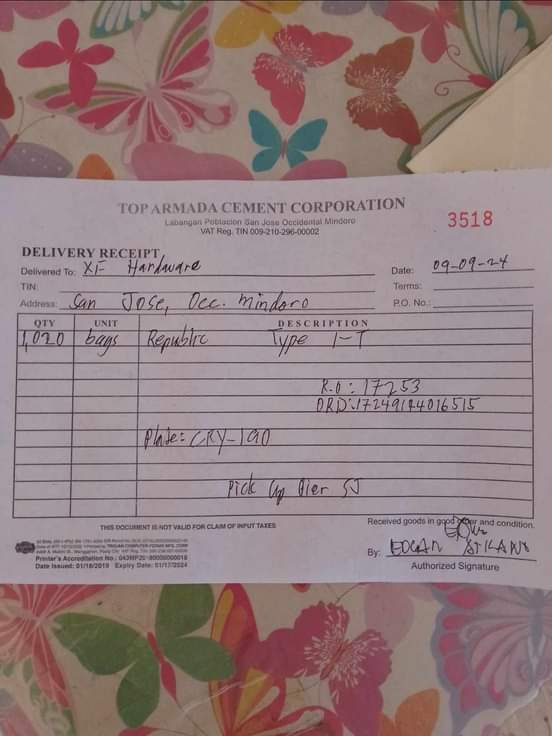 TOP ARMADA CEMENT CORPORATION
Labangan Poblacion San Jose Occidental Mindoro
VAT Reg. TIN 009-210-296-00002
3518
DELIVERY RECEIPT
Delivered To: XF Hardware
Date: 09-09-24
TIN:
Terms:
Address: San Jose, Occ. Mindoro
P.O. No.:
QTY UNIT DESCRIPTION
1,020 bags Republic Type 1-T
R.O: 17253
ORD:17249144016515
Plate: CRY-190
Pick Up Pier SJ
THIS DOCUMENT IS NOT VALID FOR CLAIM OF INPUT TAXES
Received goods in good order and condition.
By: EDGAR
Authorized Signature
Printer's Accreditation No.:
Date Issued: 01/18/2019 Expiry Date: 01/17/2024